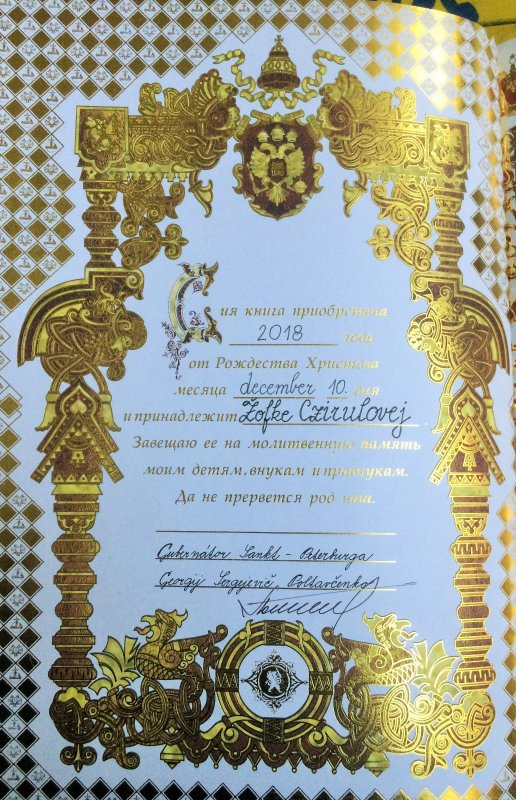 Сия книга приобретена
2018 года
от Рождества Христова
месяца december 10. дня
и принадлежит Zofke Czirutovej
Завещаю ее на молитвенную память
моим детям, внукам и правнукам.
Да не прервется род наш.
Gubernátor Sankt - Peterburga
Georgij Sergejevič Poltavčenko